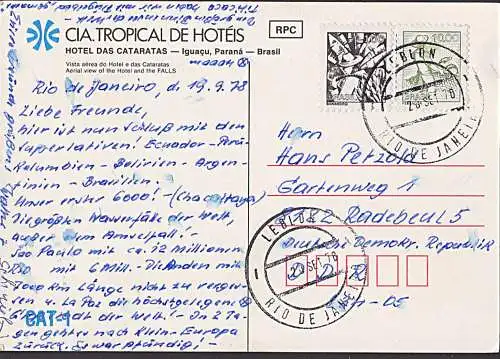 RPC
CIA. TROPICAL DE HOTÉIS
HOTEL DAS CATARATAS — Iguaçu, Paraná — Brasil
Vista aérea do Hotel e das Cataratas
Aerial view of the Hotel and the FALLS
Rio de Janeiro, d. 19.9.78
Liebe Freunde,
hier ist nun Schluß mit den
Superlativen! Ecuador - Perú
Kolumbien - Bolivien - Argen-
tinien - Brasilien.
Unser erster 6000! - (Chacaltaya)
Die größten Wasserfälle der Welt,
außer dem Amselfall!
Sao Paulo mit ca. 12 Millionen
Rio mit 6 Mill. - Die Anden mit
7000 km Länge nicht zu verges-
sen. La Paz die höchstgelegene
Stadt der Welt! In 2 Ta-
gen geht es nach Klein-Europa
zurück. Es war pfundig! -
CAT-1
Herrn
Hans Petzold
Gartenweg 1
Radebeul 5
Deutsche Demokr. Republik
D D R
BRASIL
10,00
LEBLON
20 SET 78
RIO DE JANEIRO
LEBLON
20 SET 78
RIO DE JANEIRO